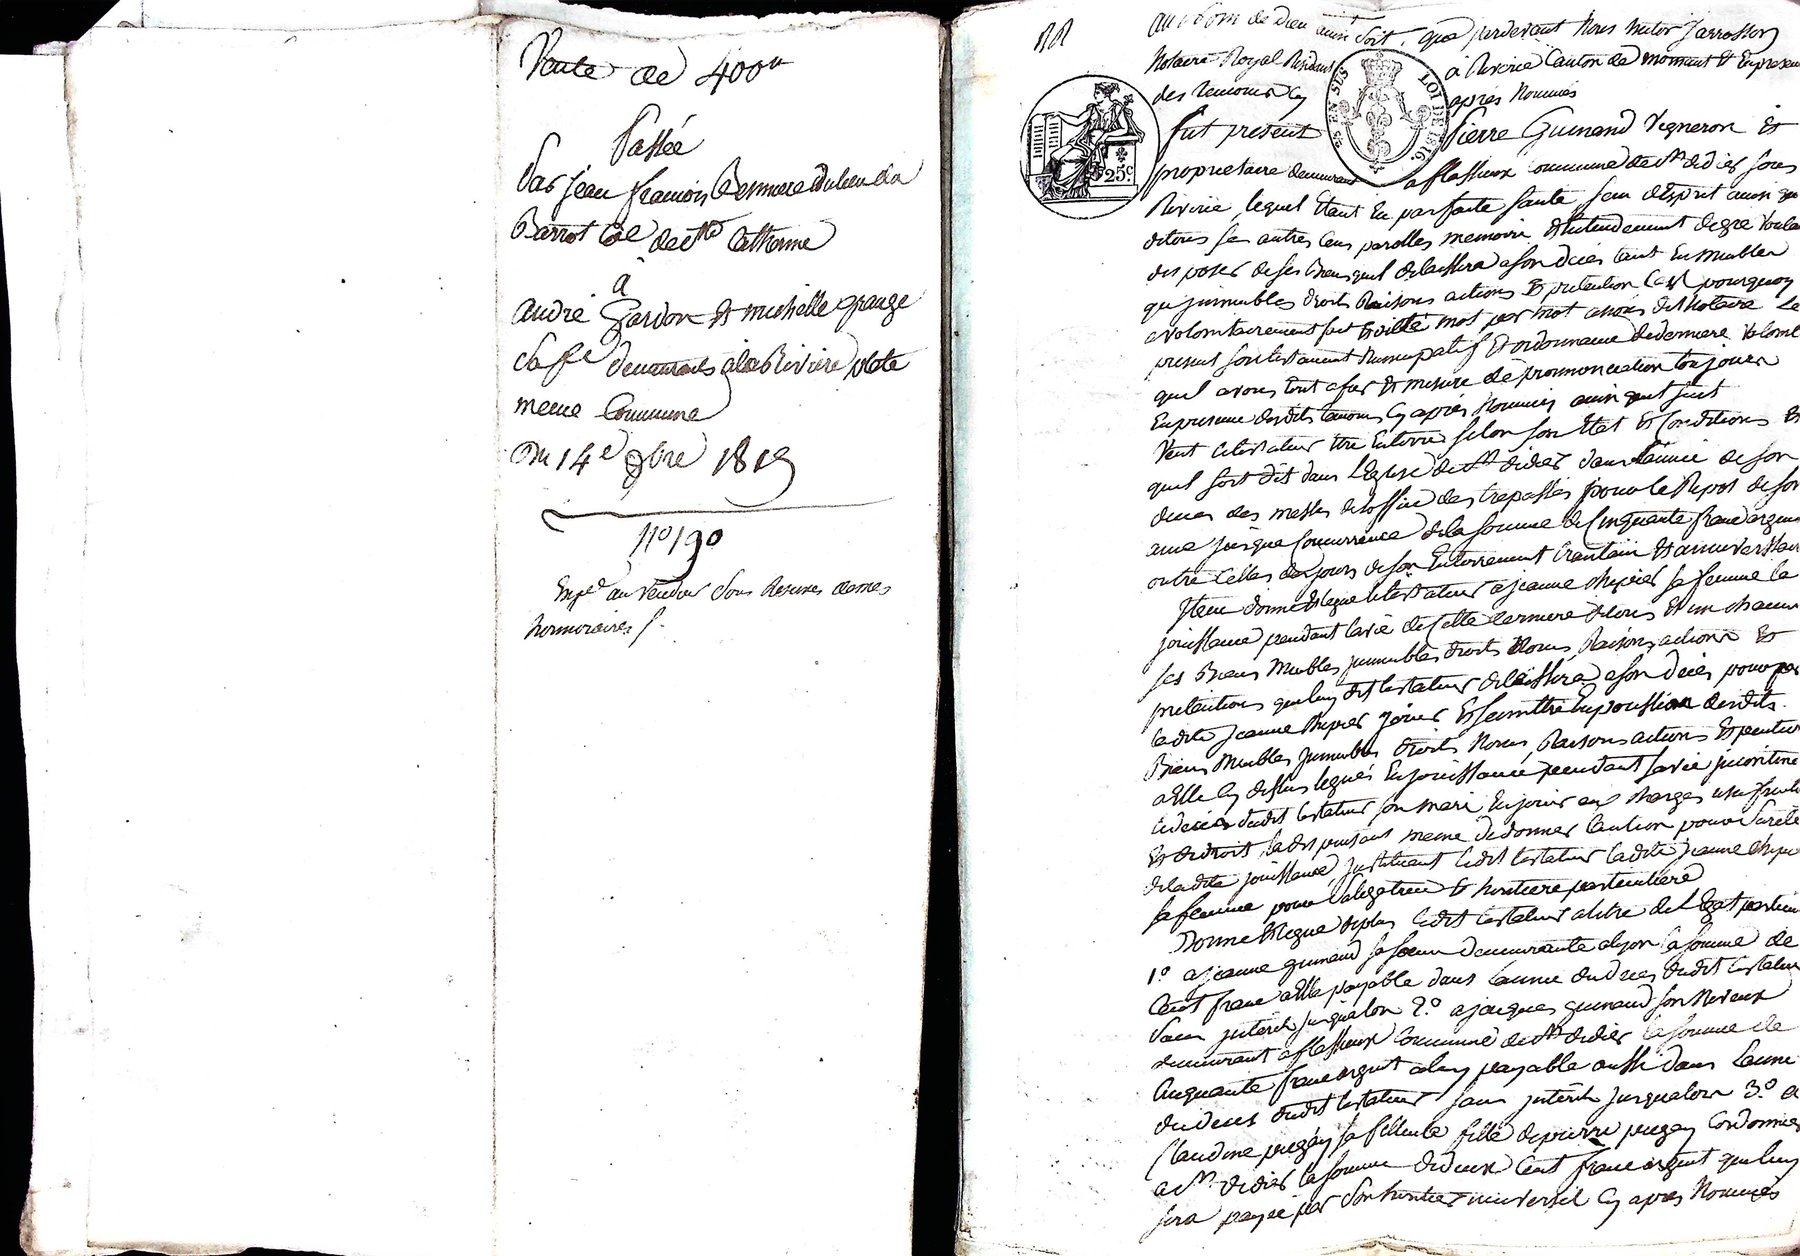 Vente de 400#
Passée
Par jean francois Besniere du lieu dela
Barrot Cne de Ste Catherine
à
andré Jardon et michelle grange
sa fe demeurants ala Riviere plate
meme Commune
Du 14e 9bre 1819
n° 190
Expé au vendeur Sous Reserves demes
honnoraires /.
au Nom de Dieu ainsi Soit, que pardevant Nous Jarrosson
Notaire Royal Résidant à Riverie Canton de mornant Et En presence
des Temoins Cy après Nommés
fut present Pierre Guinand Vigneron Et
proprietaire demeurant a flassieux Commune de St didier sous
Riverie, lequel Etant En parfaite Santé, Sain d'Esprit ainsi que
detous ses autres Sens parolles memoire Et Entendement degré Voulant
disposer de ses Biens quil delaissera a son décès tant En meubles
qu'jmmeubles droits Raisons actions Et pretention Cest pourquoy
a Volontairement fait Et dicté mot par mot anous dit Notaire Le
present son testament Nuncupatif Et ordonnance de derniere Volonté
quil avons tout afur Et mesure de prononciation toujours
En presence desdits temoins Cy après Nommés ainsi quil suit
Veut letestateur Etre Enterré selon son Etat Et Conditions Et
quil soit dit dans L'Eglise de St didier dans l'année de son
deces des messes de loffice des trepassés pour le Repos de son
ame jusque Concurrence dela somme de Cinquante franc argent
outre Celles des jours de son Enterrement trentain Et anniversaire
Item donne Et legue letestateur a jeanne Chipier sa femme la
jouissance pendant la vie de Cette derniere detous Et un chacun
ses Biens Meubles jmmeubles droits Noms Raisons actions Et
pretentions queluy dit testateur delaissera a son décès pour par
ladite jeanne Chipier jouir Et se mettre En possession desdits
Biens Meubles jmmeubles droits Noms Raisons actions Et pretentions
a Elle Cy dessus legués En jouissance pendant savie jncontinent
ledeces dudit testateur son mari En jouir aux charges usufruits
Et de droit, la dispensant meme de donner Caution pour Sureté
deladite jouissance, jnstituant ledit testateur ladite jeanne Chipier
sa femme pour sa legatrice Et heritiere particuliere
Donne Et legue deplus ledit testateur atitre de Legat particulier
1° a jeanne guinand sa soeur demeurante alyon la somme de
Cent franc a Elle payable dans lannée du deces dudit testateur
Sans jnterêt jusqualors 2° a jacques guinand son Neveux
demeurant a flassieux Commune de St didier la somme de
Cinquante franc argent aluy payable aussi dans Lannée
du deces dudit testateur sans jnterêt jusqualors 3° a
Claudine pugey sa filleule fille de pierre pugey Cordonnier
a St didier la somme de deux Cent franc argent queluy
sera payée par Son heritier universel Cy apres Nommés
LOI DE 1816.
25c